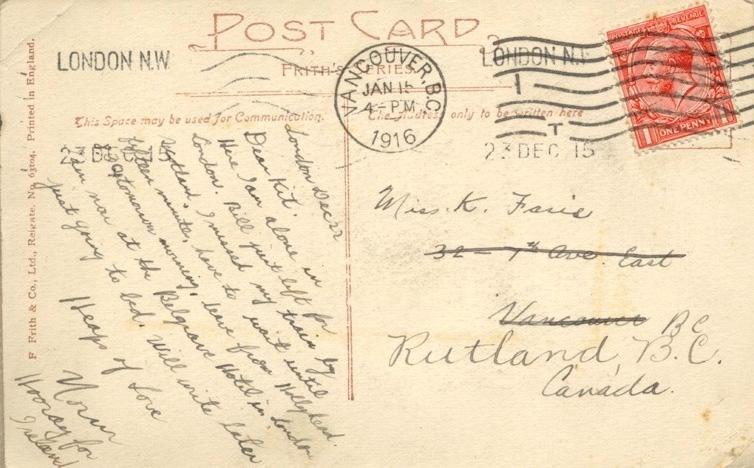 POST CARD
FRITH'S SERIES
LONDON N.W
VANCOUVER, B.C.
JAN 15
4 - PM
1916
LONDON N.W
1
T
23 DEC 15
POSTAGE REVENUE
1 ONE PENNY 1
This Space may be used for Communication.
The Address only to be written here
23 DEC 15
F Frith & Co., Ltd., Reigate. No. 63104. Printed in England.
London Dec 22
Dear Kit.
Here I am alone in
London. Bill just left for
Scotland, I missed my train by
fifteen minute, have to wait until
tomorrow morning, leave from Hollyhead.
I am now at the Belgrave Hotel in London
just going to bed. Will write later
Heaps of Love
Norm
Hooray for
Ireland
Miss. K. Faris
32 - 7th Ave. East
Vancouver BC
Rutland B.C.
Canada.